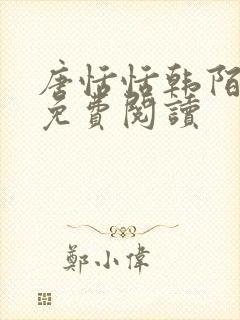 唐恬恬韩陌
免費閱讀
鄭小偉